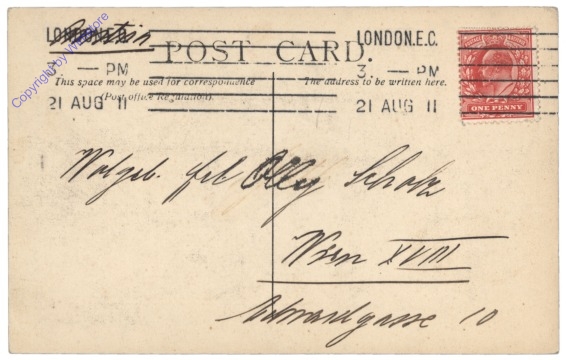 LONDON.E.C.
LONDON.E.C.
POST CARD.
3. — PM
3. — PM
This space may be used for correspondence
(Post office Regulation).
The address to be written here.
21 AUG 11
21 AUG 11
ONE PENNY
Copyright by
Wolgeb. Frl Olly Scholz
Wien XVIII
Edwardgasse 10